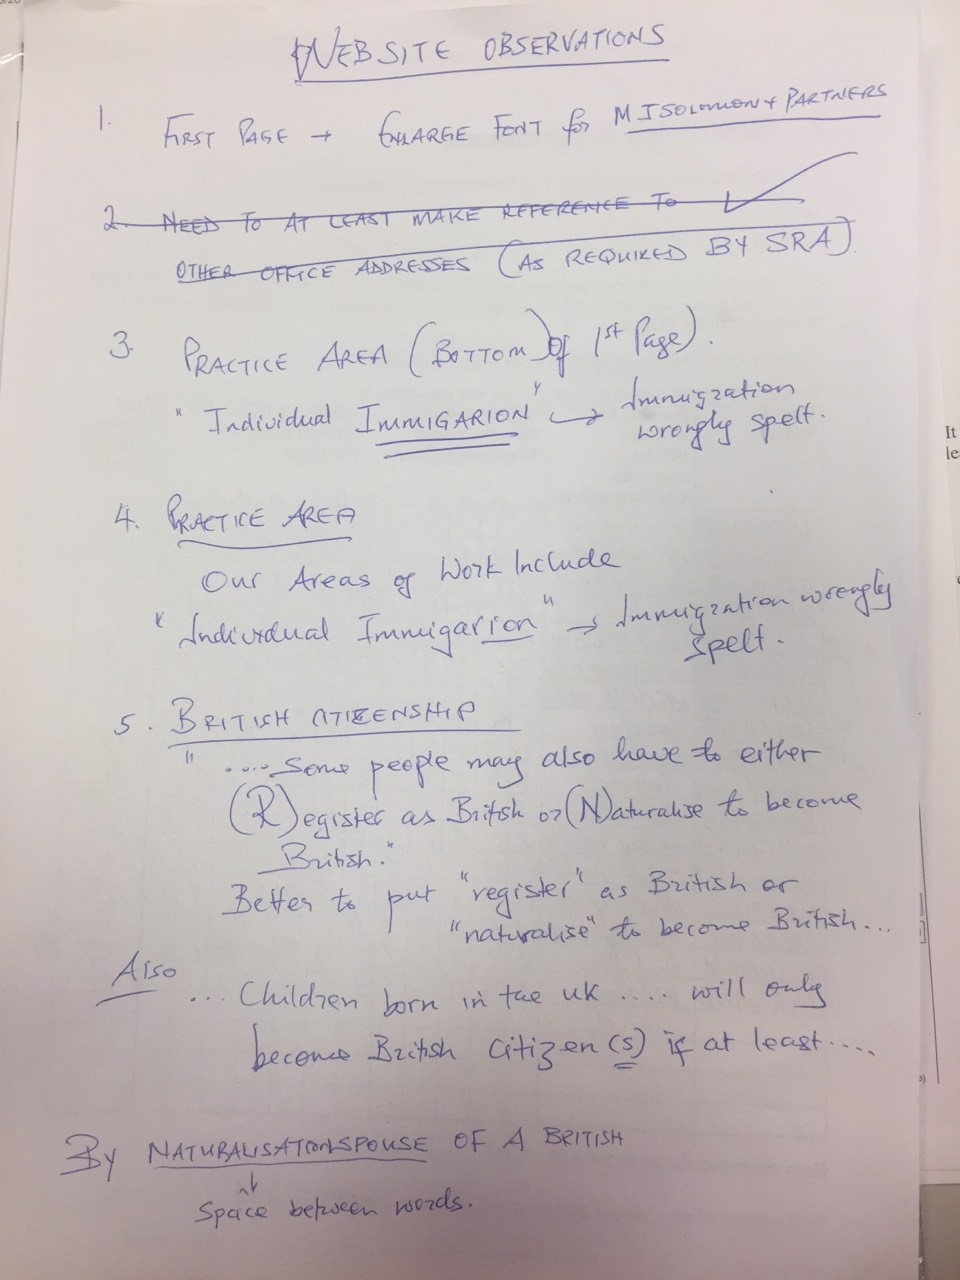 WEBSITE OBSERVATIONS
1. FIRST PAGE → ENLARGE FONT for MJSOLOMON & PARTNERS
2. NEED TO AT LEAST MAKE REFERENCE TO ✓
OTHER OFFICE ADDRESSES (AS REQUIRED BY SRA).
3. PRACTICE AREA (BOTTOM) of 1st Page).
"Individual IMMIGARION" → Immigration
wrongly spelt.
It
le
4. PRACTICE AREA
Our Areas of Work Include
"Individual Immigarion" → Immigration wrongly
spelt.
5. BRITISH CITIZENSHIP
".... Some people may also have to either
(R)egister as British or (N)aturalise to become
British."
Better to put "register" as British or
"naturalise" to become British...
Also
... Children born in the UK .... will only
become British citizen(s) if at least....
By NATURALISATIONSPOUSE OF A BRITISH
↓
Space between words.